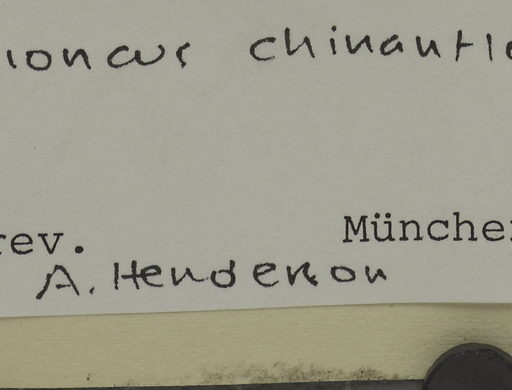 ioncus chinantle
rev. Münche
A. Henderson